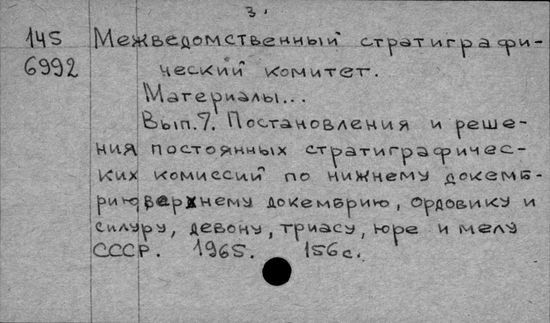 3.
145 Межведомственный стратиграфи-
6992 ческий комитет.
Материалы...
Вып.7. Постановления и реше-
ния постоянных стратиграфичес-
ких комиссий по нижнему докемб-
рию, верхнему докембрию, ордовику и
силуру, девону, триасу, юре и мелу
СССР. 1965. 156с.